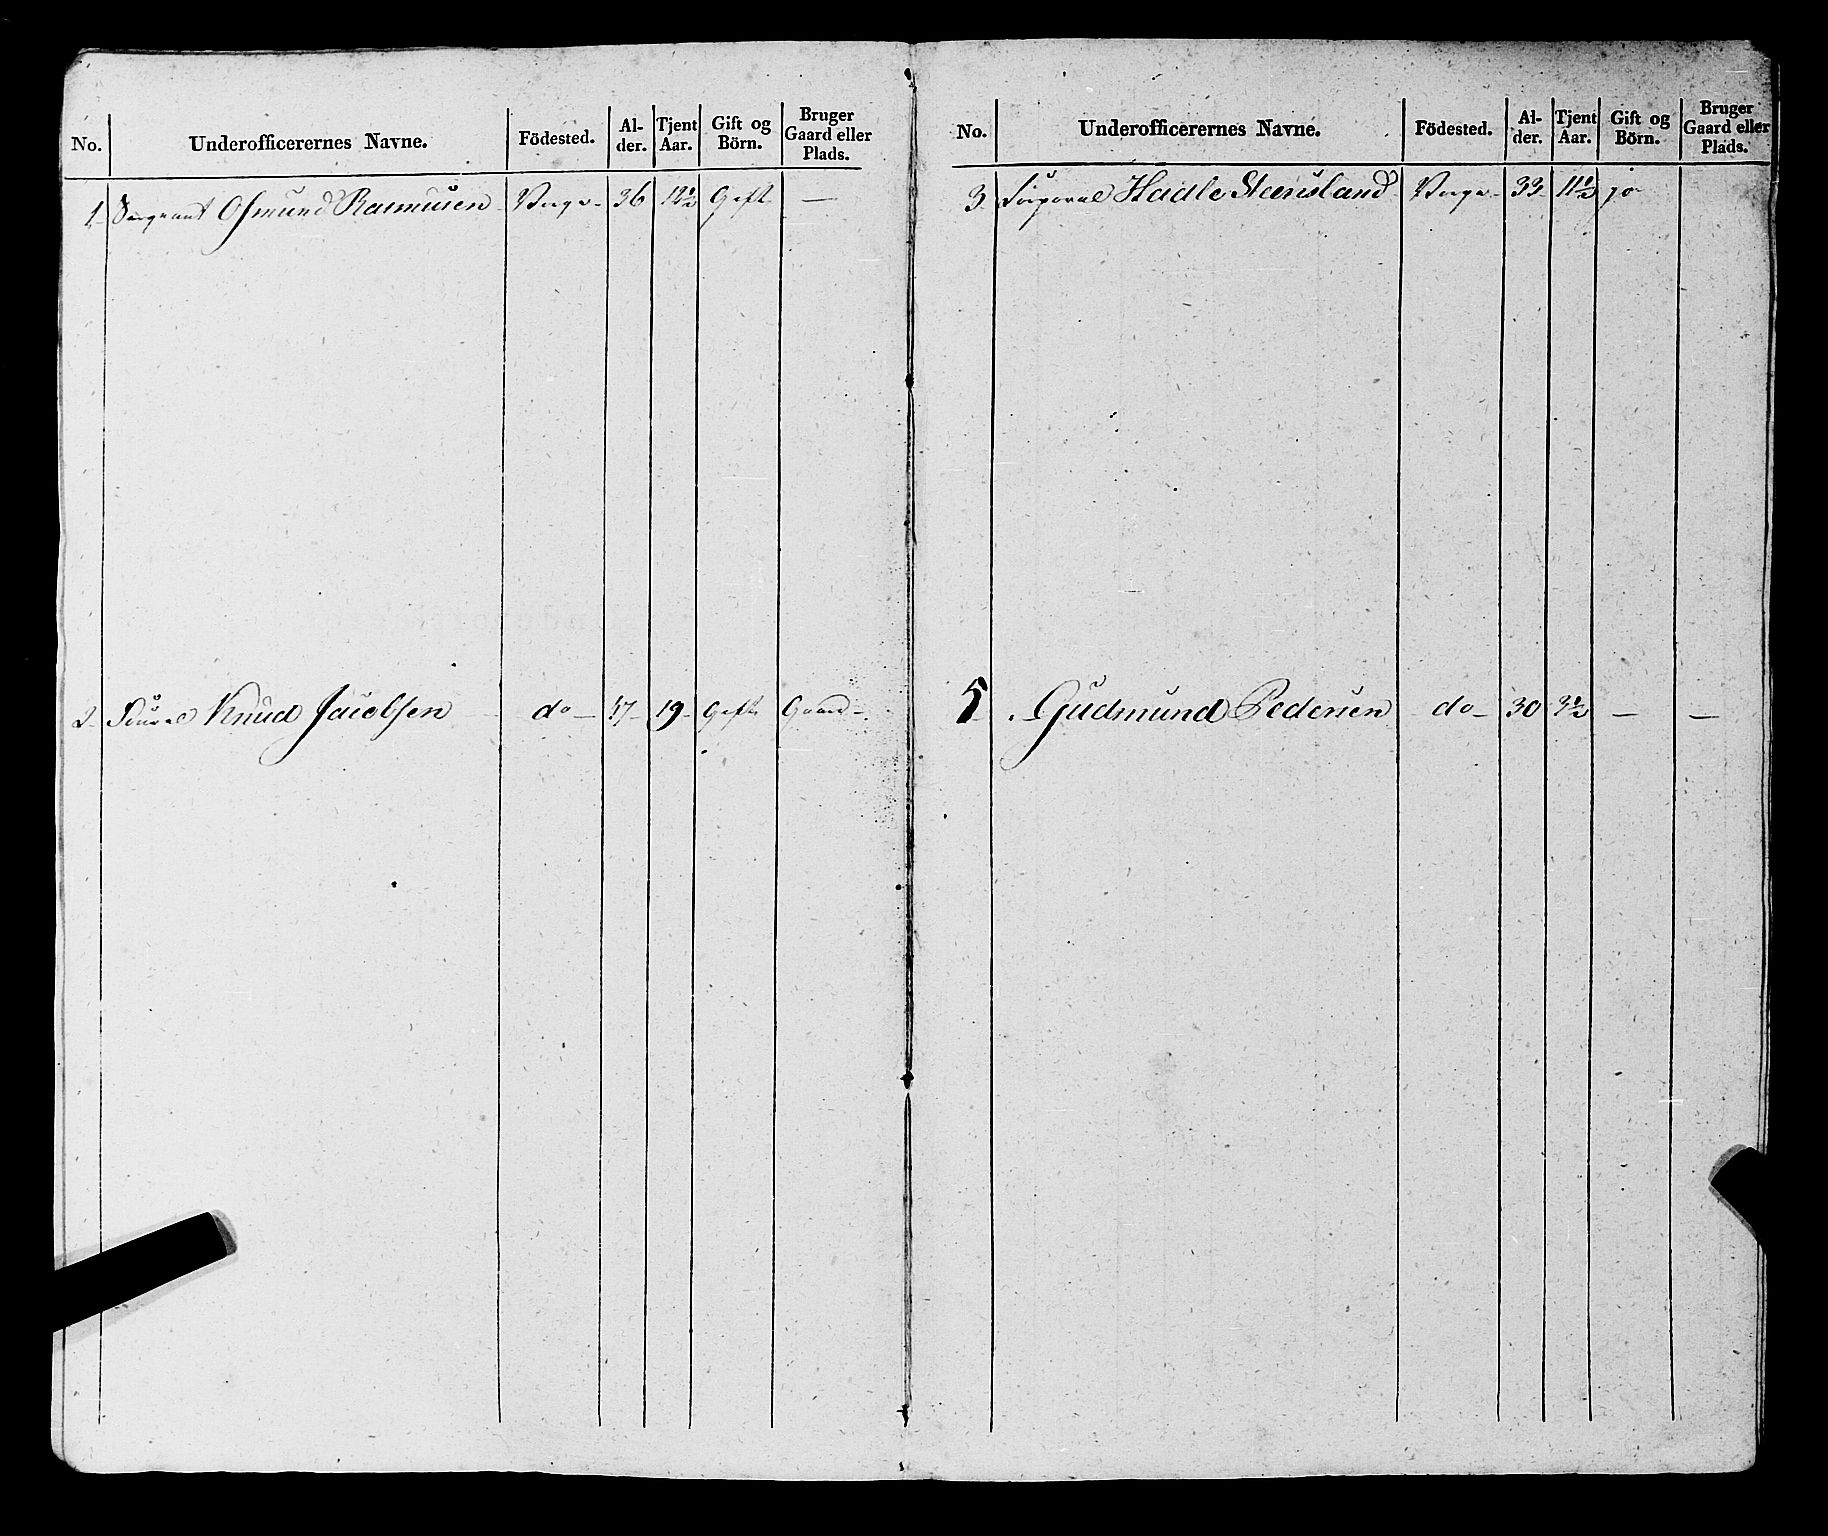 No. Underofficerernes Navne. Födested. Al- der. Tjent Aar. Gift og Börn. Bruger Gaard eller Plads.
1 Sergeant Osmund Rasmusen Norge 36 12½ Gift —
2 Knud Jacobsen do 19 Gift Gaard
No. Underofficerernes Navne. Födested. Al- der. Tjent Aar. Gift og Börn. Bruger Gaard eller Plads.
3 Corporal Hadle Steensland Norge 33 11½ jo
5 Gudmund Pedersen do 30 3½ — —